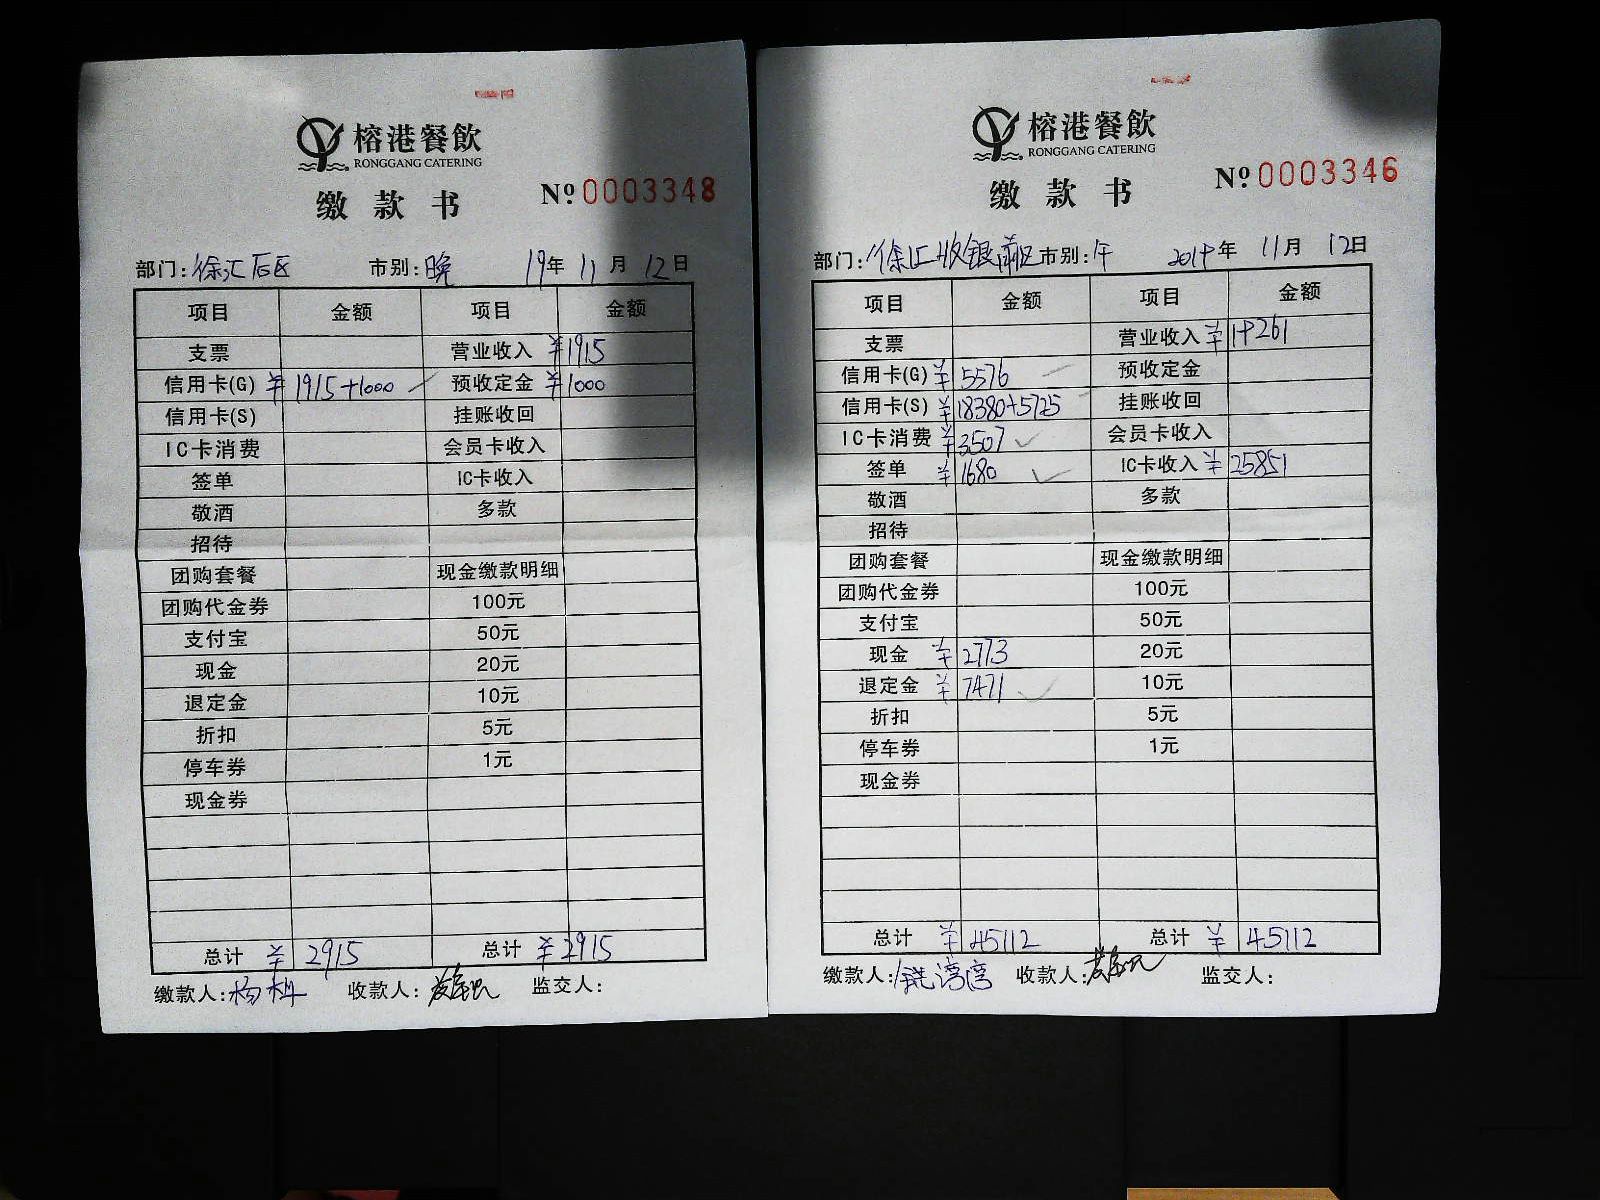 榕港餐飲
RONGGANG CATERING
缴款书
№ 0003348
部门: 徐汇后区 市别: 晚 19年 11月 12日
项目 金额 项目 金额
支票 营业收入 ¥1915
信用卡(G) ¥1915+1000 预收定金 ¥1000
信用卡(S) 挂账收回
IC卡消费 会员卡收入
签单 IC卡收入
敬酒 多款
招待
团购套餐 现金缴款明细
团购代金券 100元
支付宝 50元
现金 20元
退定金 10元
折扣 5元
停车券 1元
现金券
总计 ¥2915 总计 ¥2915
缴款人: 收款人: 监交人:
榕港餐飲
RONGGANG CATERING
缴款书
№ 0003346
部门: 徐汇收银前区 市别: 午 2019年 11月 12日
项目 金额 项目 金额
支票 营业收入 ¥19261
信用卡(G) ¥5576 预收定金
信用卡(S) ¥18380+5725 挂账收回
IC卡消费 ¥3507 会员卡收入
签单 ¥1680 IC卡收入 ¥25851
敬酒 多款
招待
团购套餐 现金缴款明细
团购代金券 100元
支付宝 50元
现金 ¥2773 20元
退定金 ¥7471 10元
折扣 5元
停车券 1元
现金券
总计 ¥45112 总计 ¥45112
缴款人: 收款人: 监交人: